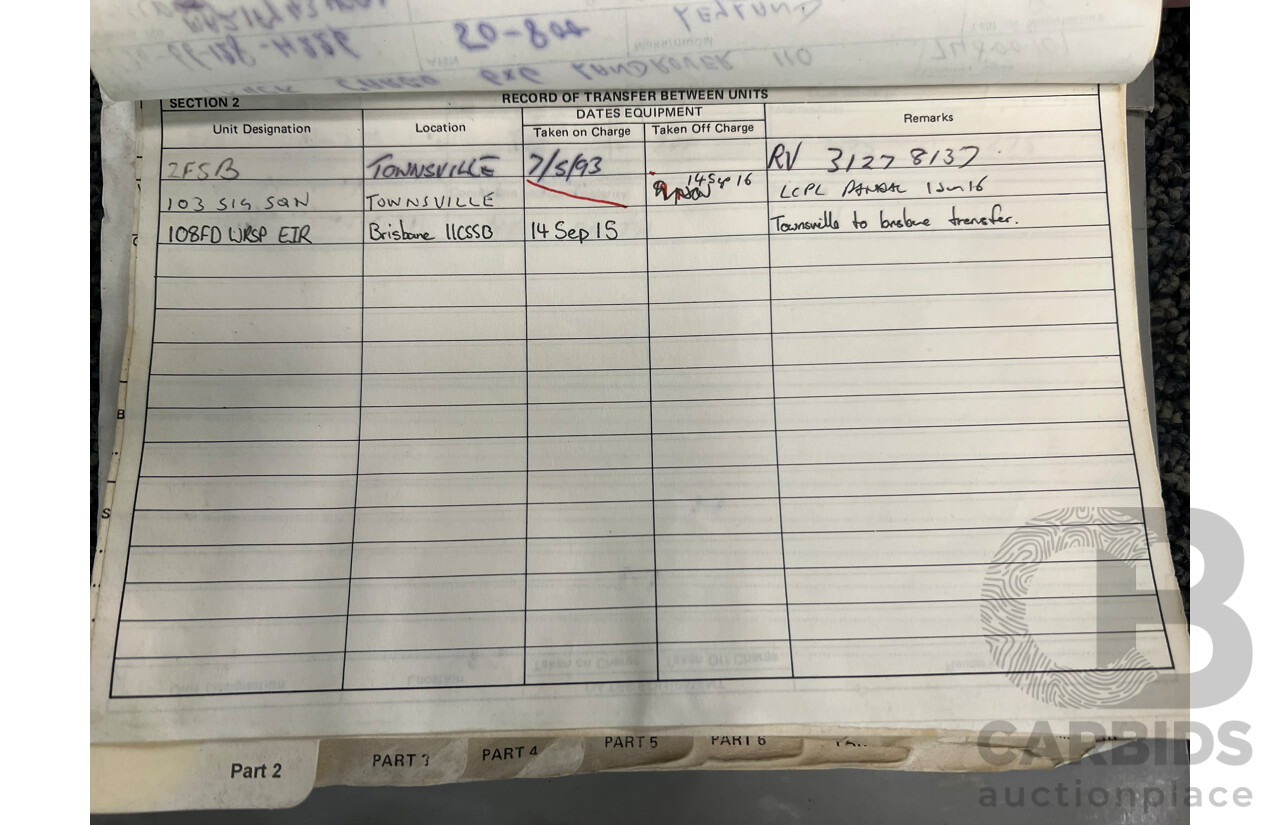 20-804
LANDROVER 110
SECTION 2
RECORD OF TRANSFER BETWEEN UNITS
Unit Designation Location DATES EQUIPMENT Remarks
Taken on Charge Taken Off Charge
2FSB TOWNSVILLE 7/5/93 RV 3127 8137
103 SIG SQN TOWNSVILLE 14 Sep 16 LCPL 1 Jun 16
108FD WKSP EIR Brisbane 11CSSB 14 Sep 15 Townsville to brisbane transfer.
B
S
Part 2 PART 3 PART 4 PART 5 PART 6
CB
CARBIDS
auctionplace